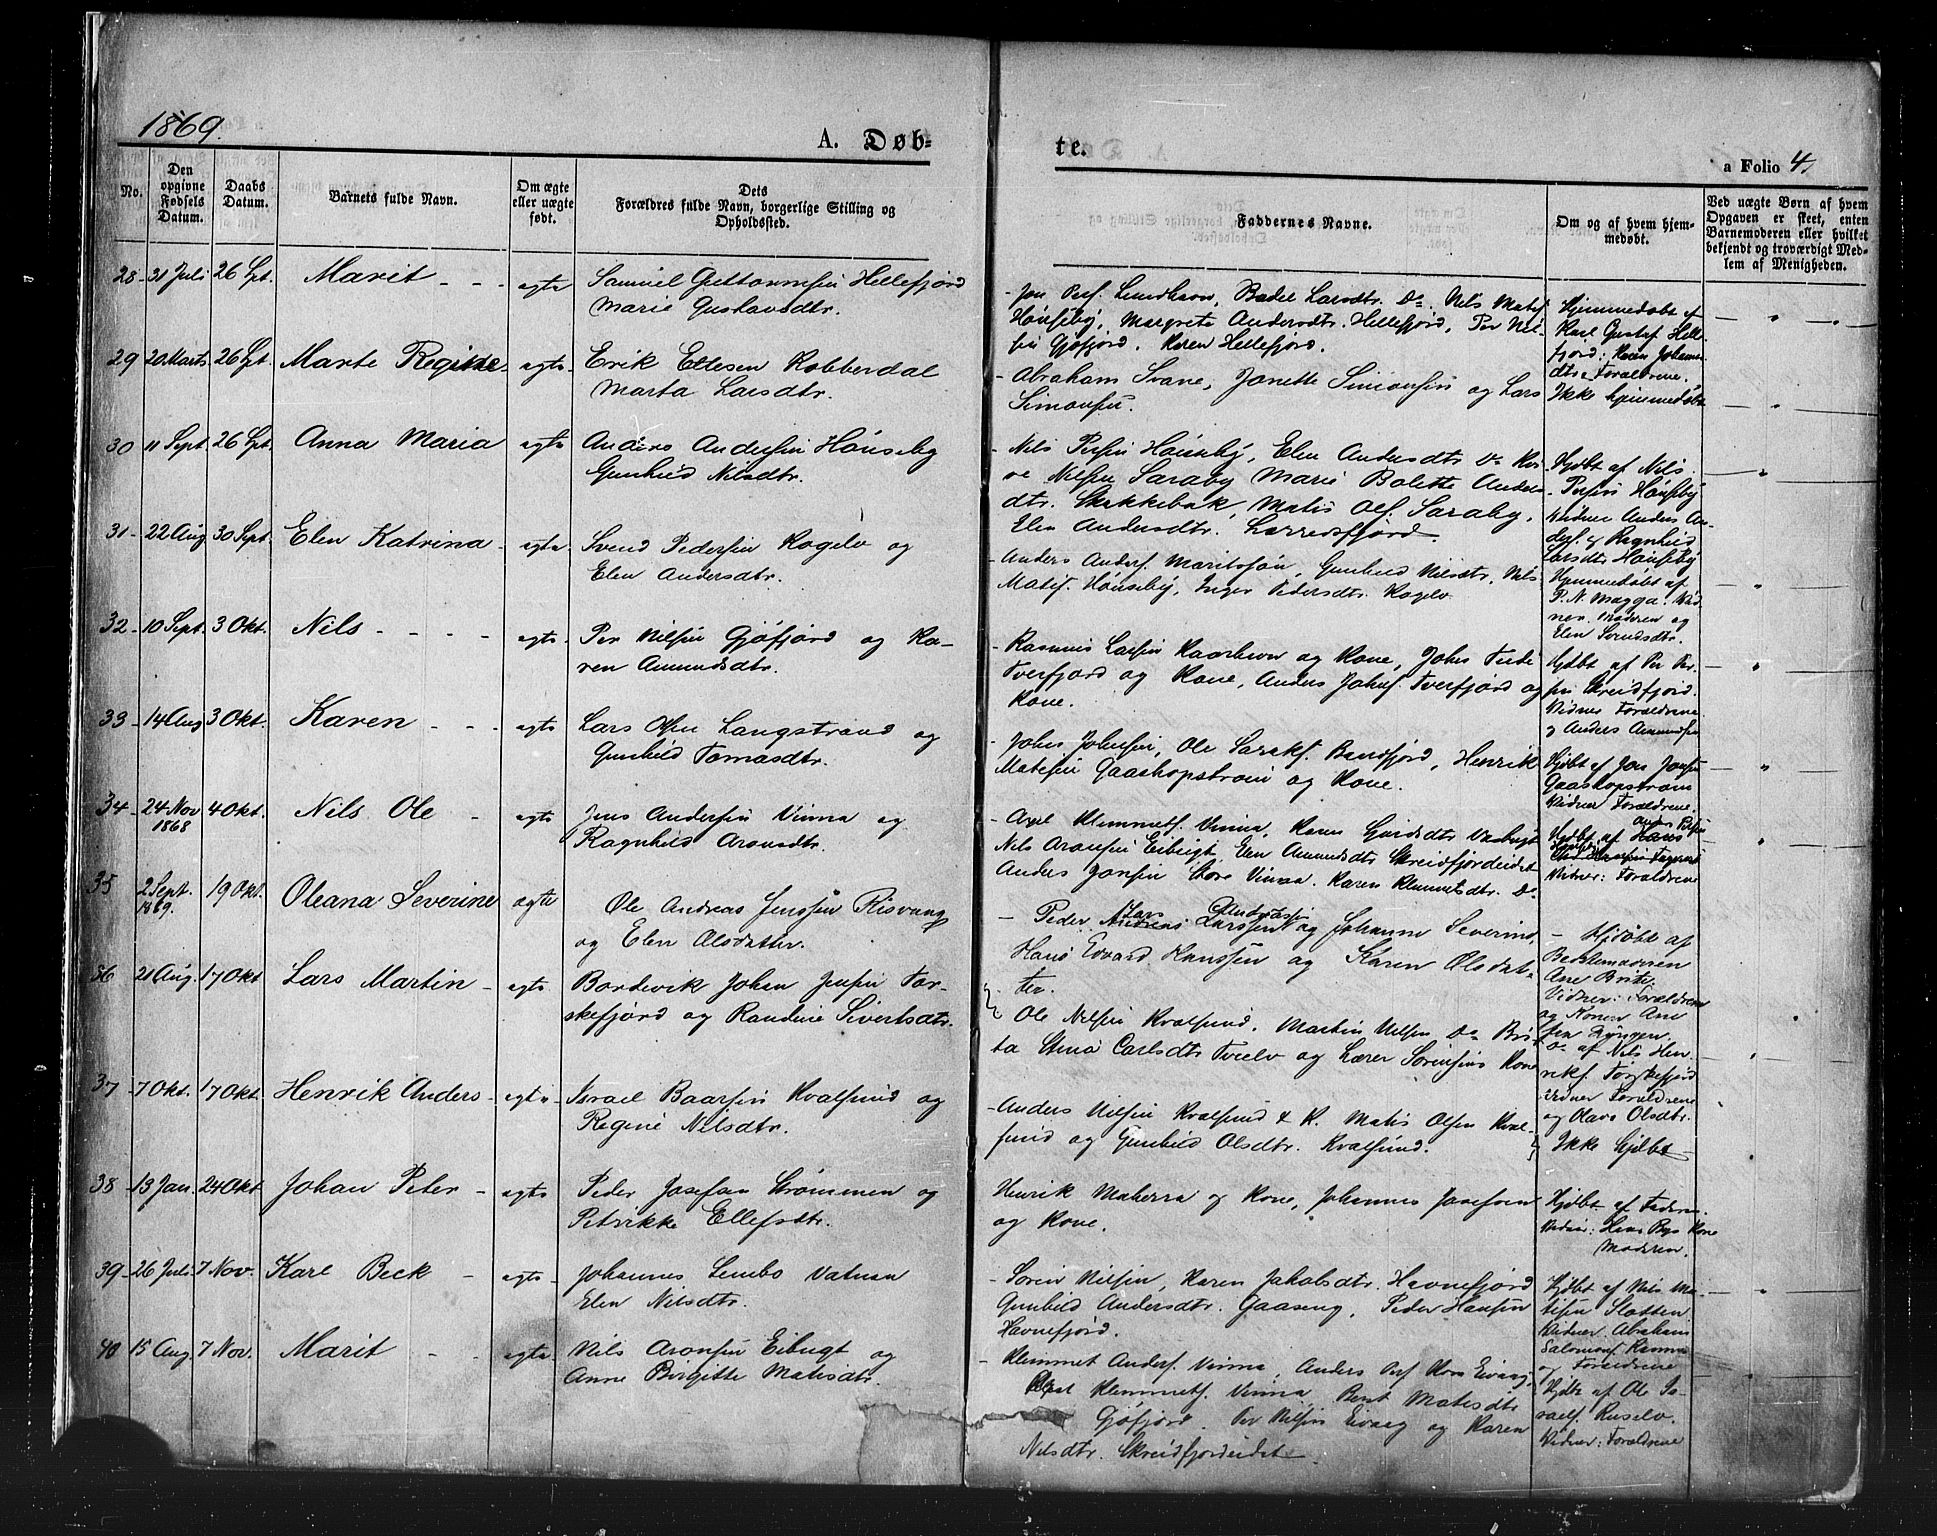 1869.
A. Døb-
te.
a Folio 4
No.
Den opgivne Fødsels Datum.
Daabs Datum.
Barnets fulde Navn.
Om ægte eller uægte født.
Dets Forældres fulde Navn, borgerlige Stilling og Opholdssted.
Faddernes Navne.
Om og af hvem hjemmedøbt.
Ved uægte Børn af hvem Opgaven er skeet, enten Barnemoderen eller hvilket bekjendt og troværdigt Medlem af Menigheden.
28 - 31 Juli 26 Spt. Marit - - - ægte
Samuel Hellefjord
Marie Gustavsdtr.
Jon Perf. Lundhavn, Badel Larsdtr. Do. Nils Matif.
Hönseby, Margrete Andersdtr. Hellefjord, Per Nil-
sen Gjøfjord, Karen Hellefjord.
Hjemmedøbt af
Karl Gustaf Helle-
fjord: Karen Johanne-
dtr. Forældrene.
29 20 Marts 26 Spt. Marte Regine ægte
Erik Ellesen Kobberdal
Marta Larsdtr.
Abraham Svane, Janette Simonsen og Lars
Simonsen.
Ikke hjemmedøbt
30 11 Sept. 26 Spt. Anna Maria ægte
Anders Andersen Hönseby
Gunhild Nilsdtr.
Nils Persen Hönseby, Elen Andersdtr. Do
Nilsen Saraby Marie Bolette Anders-
dtr. Skakkebak, Matis Olf. Saraby,
Elen Andersdtr. Lerredsfjord.
Hjdbt af Nils
Persen Hönseby
Vidner Anders An-
ders. og Ragnhild
Larsdtr. Hönseby
31 - 22 Aug 30 Sept. Elen Katrina - ægte
Svend Pedersen Kogelv og
Elen Andersdtr.
Anders Anderf. Gunhild Nilsdtr. Nils
Matif. Hönseby, Inger Pedersdtr. Kogelv
Hjemmedøbt af
P. N. Magga. Vid-
ner. Moderen og
Elen Svendsdtr.
32 - 10 Sept. 3 Okt. Nils - - - - ægte
Per Nilsen Gjøfjord og Ka-
ren Amundsdtr.
Rasmus Larsen Kaarhavn og Kone, Johes
Tverfjord og Kone, Anders Johnf. Tverfjord og
Kone.
Hjdbt af Per Per-
sen Skreidfjord.
Vidner Forældrene
og Anders Amundsen
33 - 14 Aug 3 Okt. Karen - - - ægte
Lars Olsen Langstrand og
Gunhild Tomasdtr.
Johes Johnsen, Ole Sarakf. Bundfjord, Henrik
Matisen Gaashopstrøm og Kone.
Hjdbt af Jon Jonsen
Gaashopstrøm
Vidner Forældrene.
34 - 24 Nov 1868 4 Okt. Nils Ole - ægte
Jens Andersen Vinna og
Ragnhild Aronsdtr.
Axel Klemmetf. Vinna, Karen
Nils Aronsen Eibugt, Elen Amundsdtr. Skreidfjordeidet
Anders Jonsen Store Vinna. Karen Klemmetsdtr. Do
Hjdbt af
Vidner: Forældrene
35 2 Sept. 1869. 19 Okt. Oleana Severine ægte
Ole Andreas Jenssen Risvaag
og Elen Olsdatter.
Peder Lars og Johanne Severine,
Hans Edvard Hanssen og Karen Olsdat-
ter.
Hjdøbt af
Bedstemoderen
Ane Brite:
Vidner: Forældrene
og Konen Ane
36 21 Aug. 17 Okt Lars Martin - ægte
Bordevik Johan Jensen Tor-
skefjord og Randine Sivertsdtr.
Ole Nilsen Kvalsund, Martin Nilsen Do Bri-
ta Stina Carlsdtr. og Lærer Sørensens Kone
Do af Nils Hen-
rikf. Torskefjord
Vidner Forældrene
og Olava Olsdtr.
37 - 7 Okt. 17 Okt. Henrik Anders - ægte
Israel Baarsen Kvalsund og
Regine Nilsdtr.
Anders Nilsen Kvalsund & K. Matis Olsen Kval-
sund og Gunhild Olsdtr. Kvalsund.
Ikke hjdbt
38 - 13 Jan. 24 Okt Johan Peter - ægte
Peder Josefsen Strømmen og
Petrikke Ellefsdtr.
Henrik Materra og Kone, Johannes Josefsen
og Kone.
Hjdbt af Faderen.
Vidner: Kone
Moderen.
39 - 26 Juli 7 Nov. Karl Beck - ægte
Johannes Lembo Vatnan
Elen Nilsdtr.
Søren Nilsen, Karen Jakobsdtr. Havnefjord
Gunhild Andersdtr. Gaaseng, Peder Hansen
Havnefjord.
Hjdbt af Nils Ma-
tisen Slotten
Vidner Abraham
Salomonf.
og Forældrene
40 15 Aug. 7 Nov. Marit - - ægte
Nils Aronsen Eibugt og
Anne Birgitte Matisdtr.
Klemmet Anderf. Vinna, Anders Perf.
Axel Klemmetf. Vinna Berit Matisdtr
Gjøfjord. Per Nilsen og Karen
Nilsdtr. Skreidfjordeidet
Hjdbt af Ole Is-
raelf. Ruselv.
Vidner: Forældrene